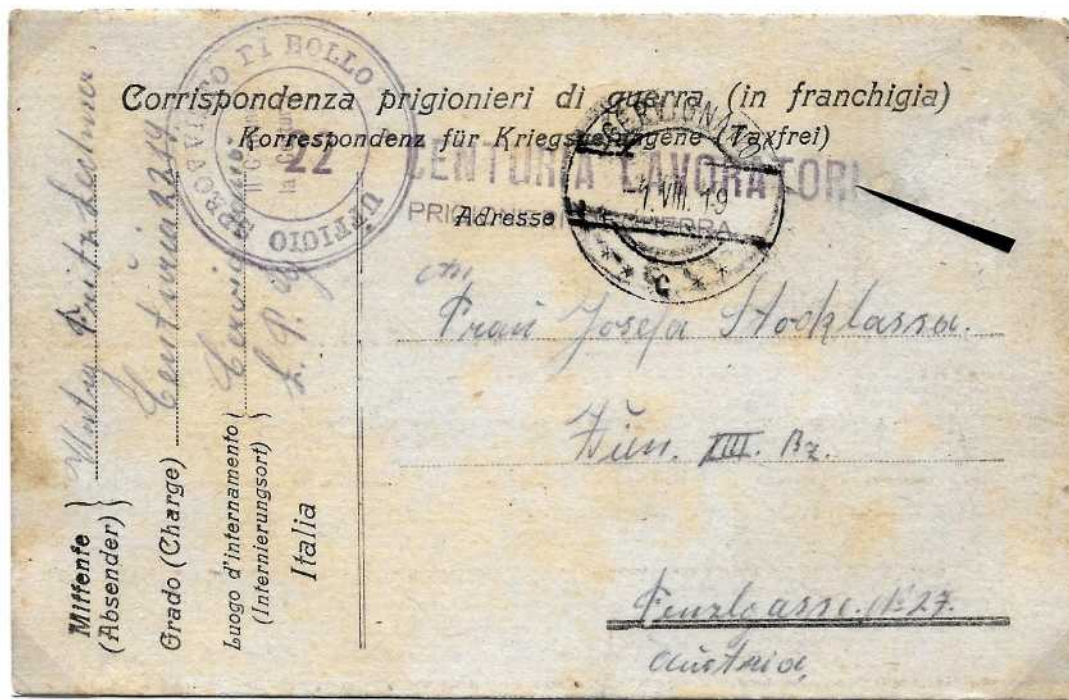 Corrispondenza prigionieri di guerra (in franchigia)
Korrespondenz für Kriegsgefangene (Taxfrei)
UFFICIO SPROVVISTO DI BOLLO
22
CENTURIA LAVORATORI
PRIGIONIERI GUERRA
1. VIII. 19
Adresse
An
Frau Josefa Stoklassa.
Wien. XIII. Bz.
Penzlgasse. № 27.
Austria,
Mittente
(Absender)
Fritz
Grado (Charge)
Centuria 22
Luogo d'internamento
(Internierungsort)
Italia